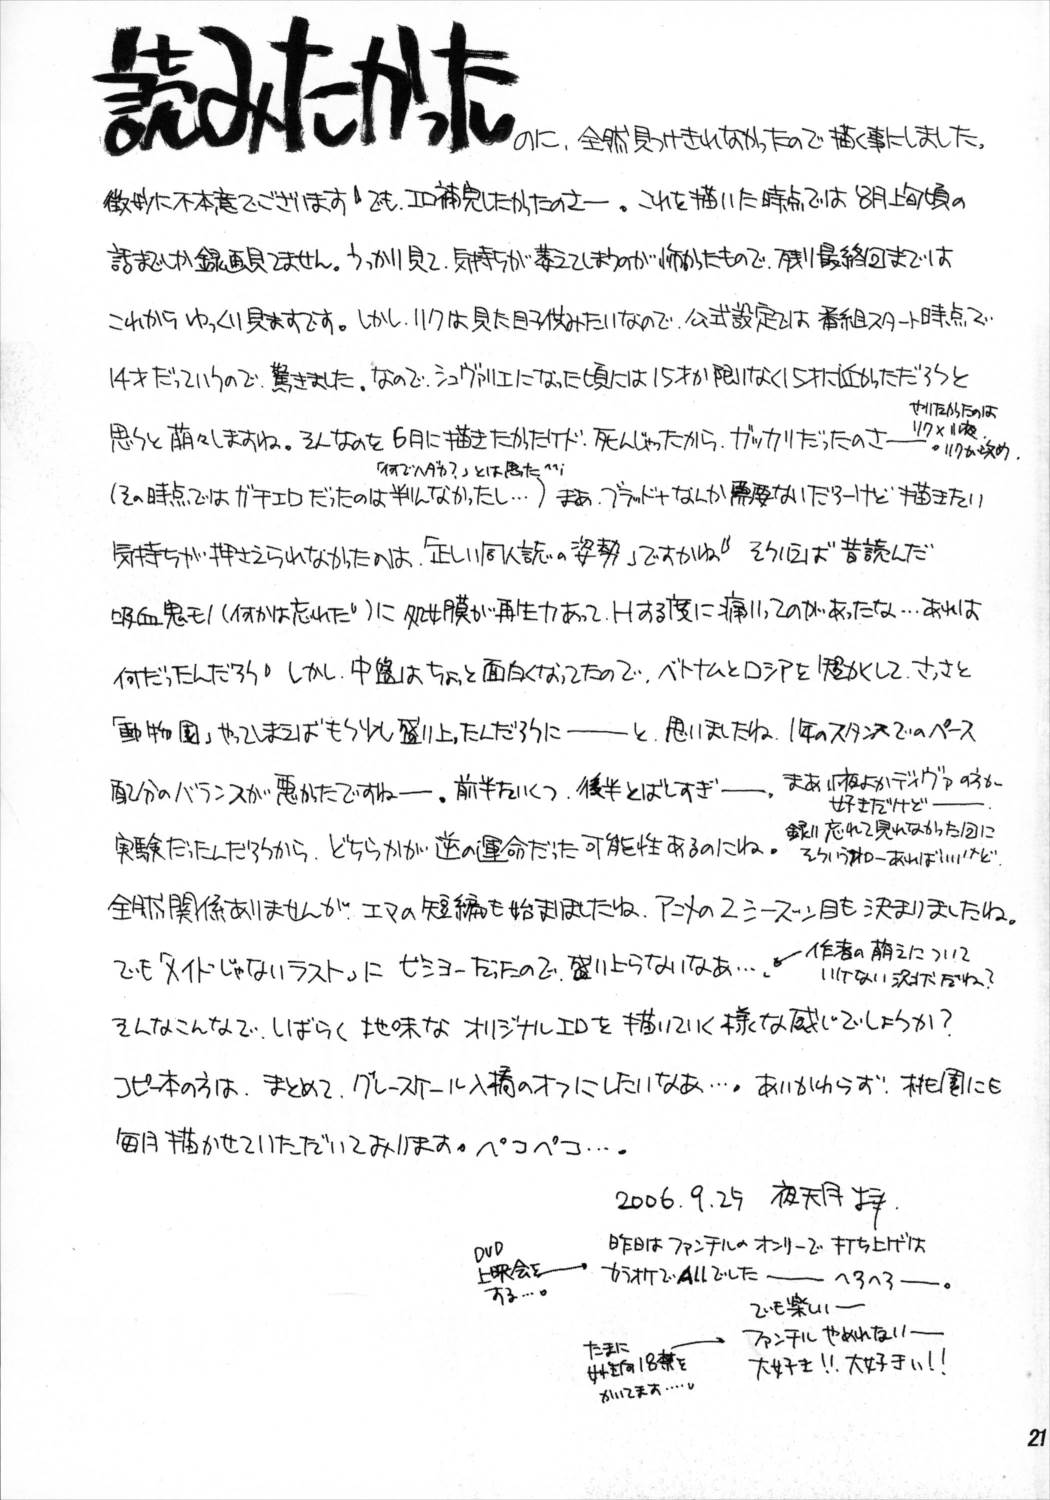 読みたかった
のに、全然見つけきれなかったので描く事にしました。
微妙に不本意でございます でも、エロ補完したかったのさー。これを描いた時点では8月上旬頃の
話までしか録画見てません。うっかり見て、気持ちが萎えてしまうのが怖かったもので、残り最終回までは
これからゆっくり見ますです。しかし、リクは見た目子供みたいなので、公式設定では番組スタート時点で
14才だっていうので、驚きました。なので、シュヴァリエになった頃には15才か限りなく15才に近かっただろうと
思うと萌々しますね。そんなのを6月に描きたかだけド、死んじゃったから、ガッカリだったのさ――。
やりたかったのは
リク×小夜。
リクが攻め。
「何でハダカ?」とは思た
(その時点ではガチエロだったのは判んなかったし…)まあ、ブラッド+なんか需要ないだろーけど描きたい
気持ちが押さえられなかたのは、「正しい同人誌の姿勢」ですかね そういえば昔読んだ
吸血鬼モノ(何かは忘れた)に処女膜が再生力あって、Hする度に痛いってのがあったな…あれは
何だったんだろう しかし、中盤はちょっと面白くなってたので、ベトナムとロシアを短かくして、さっさと
「動物園」やってしまえばもう少し盛り上ったんだろうに――と、思いましたね、1年のスタンスでのペース
配分のバランスが悪かたですねー。前半たいくつ、後半とばしすぎー。
まあ小夜よかディヴァの方が
好きだけど――。
録り忘れて見れなかった回に
そういうネローあればいいけど。
実験だったんだろうから、どちらかが逆の運命だった可能性あるのにね。
全然関係ありませんが、エマの短編も始まりましたね、アニメの2シーズン目も決まりましたね。
でも「メイドじゃないラスト」にビミョーだったので、盛り上らないなあ…。
作者の萌えについて
いけない状態だね?
そんなこんなで、しばらく地味なオリジナルエロを描いていく様な感じでしょうか?
コピー本の方は、まとめて、グレースケール入稿のオフにしたいなあ…。あいかわらず、桃園にも
毎月描かせていただいております。ペコペコ…。
2006.9.25 夜天月 拝.
昨日はファンテルのオンリーで打ち上げは
カラオケでAllでした――へろへろ――。
DVD
上映会を
する…。
でも楽しいー
ファンテルやめれないー
大好き!!大好きぃ!!
たまに
女性向18禁を
かいてます……
21